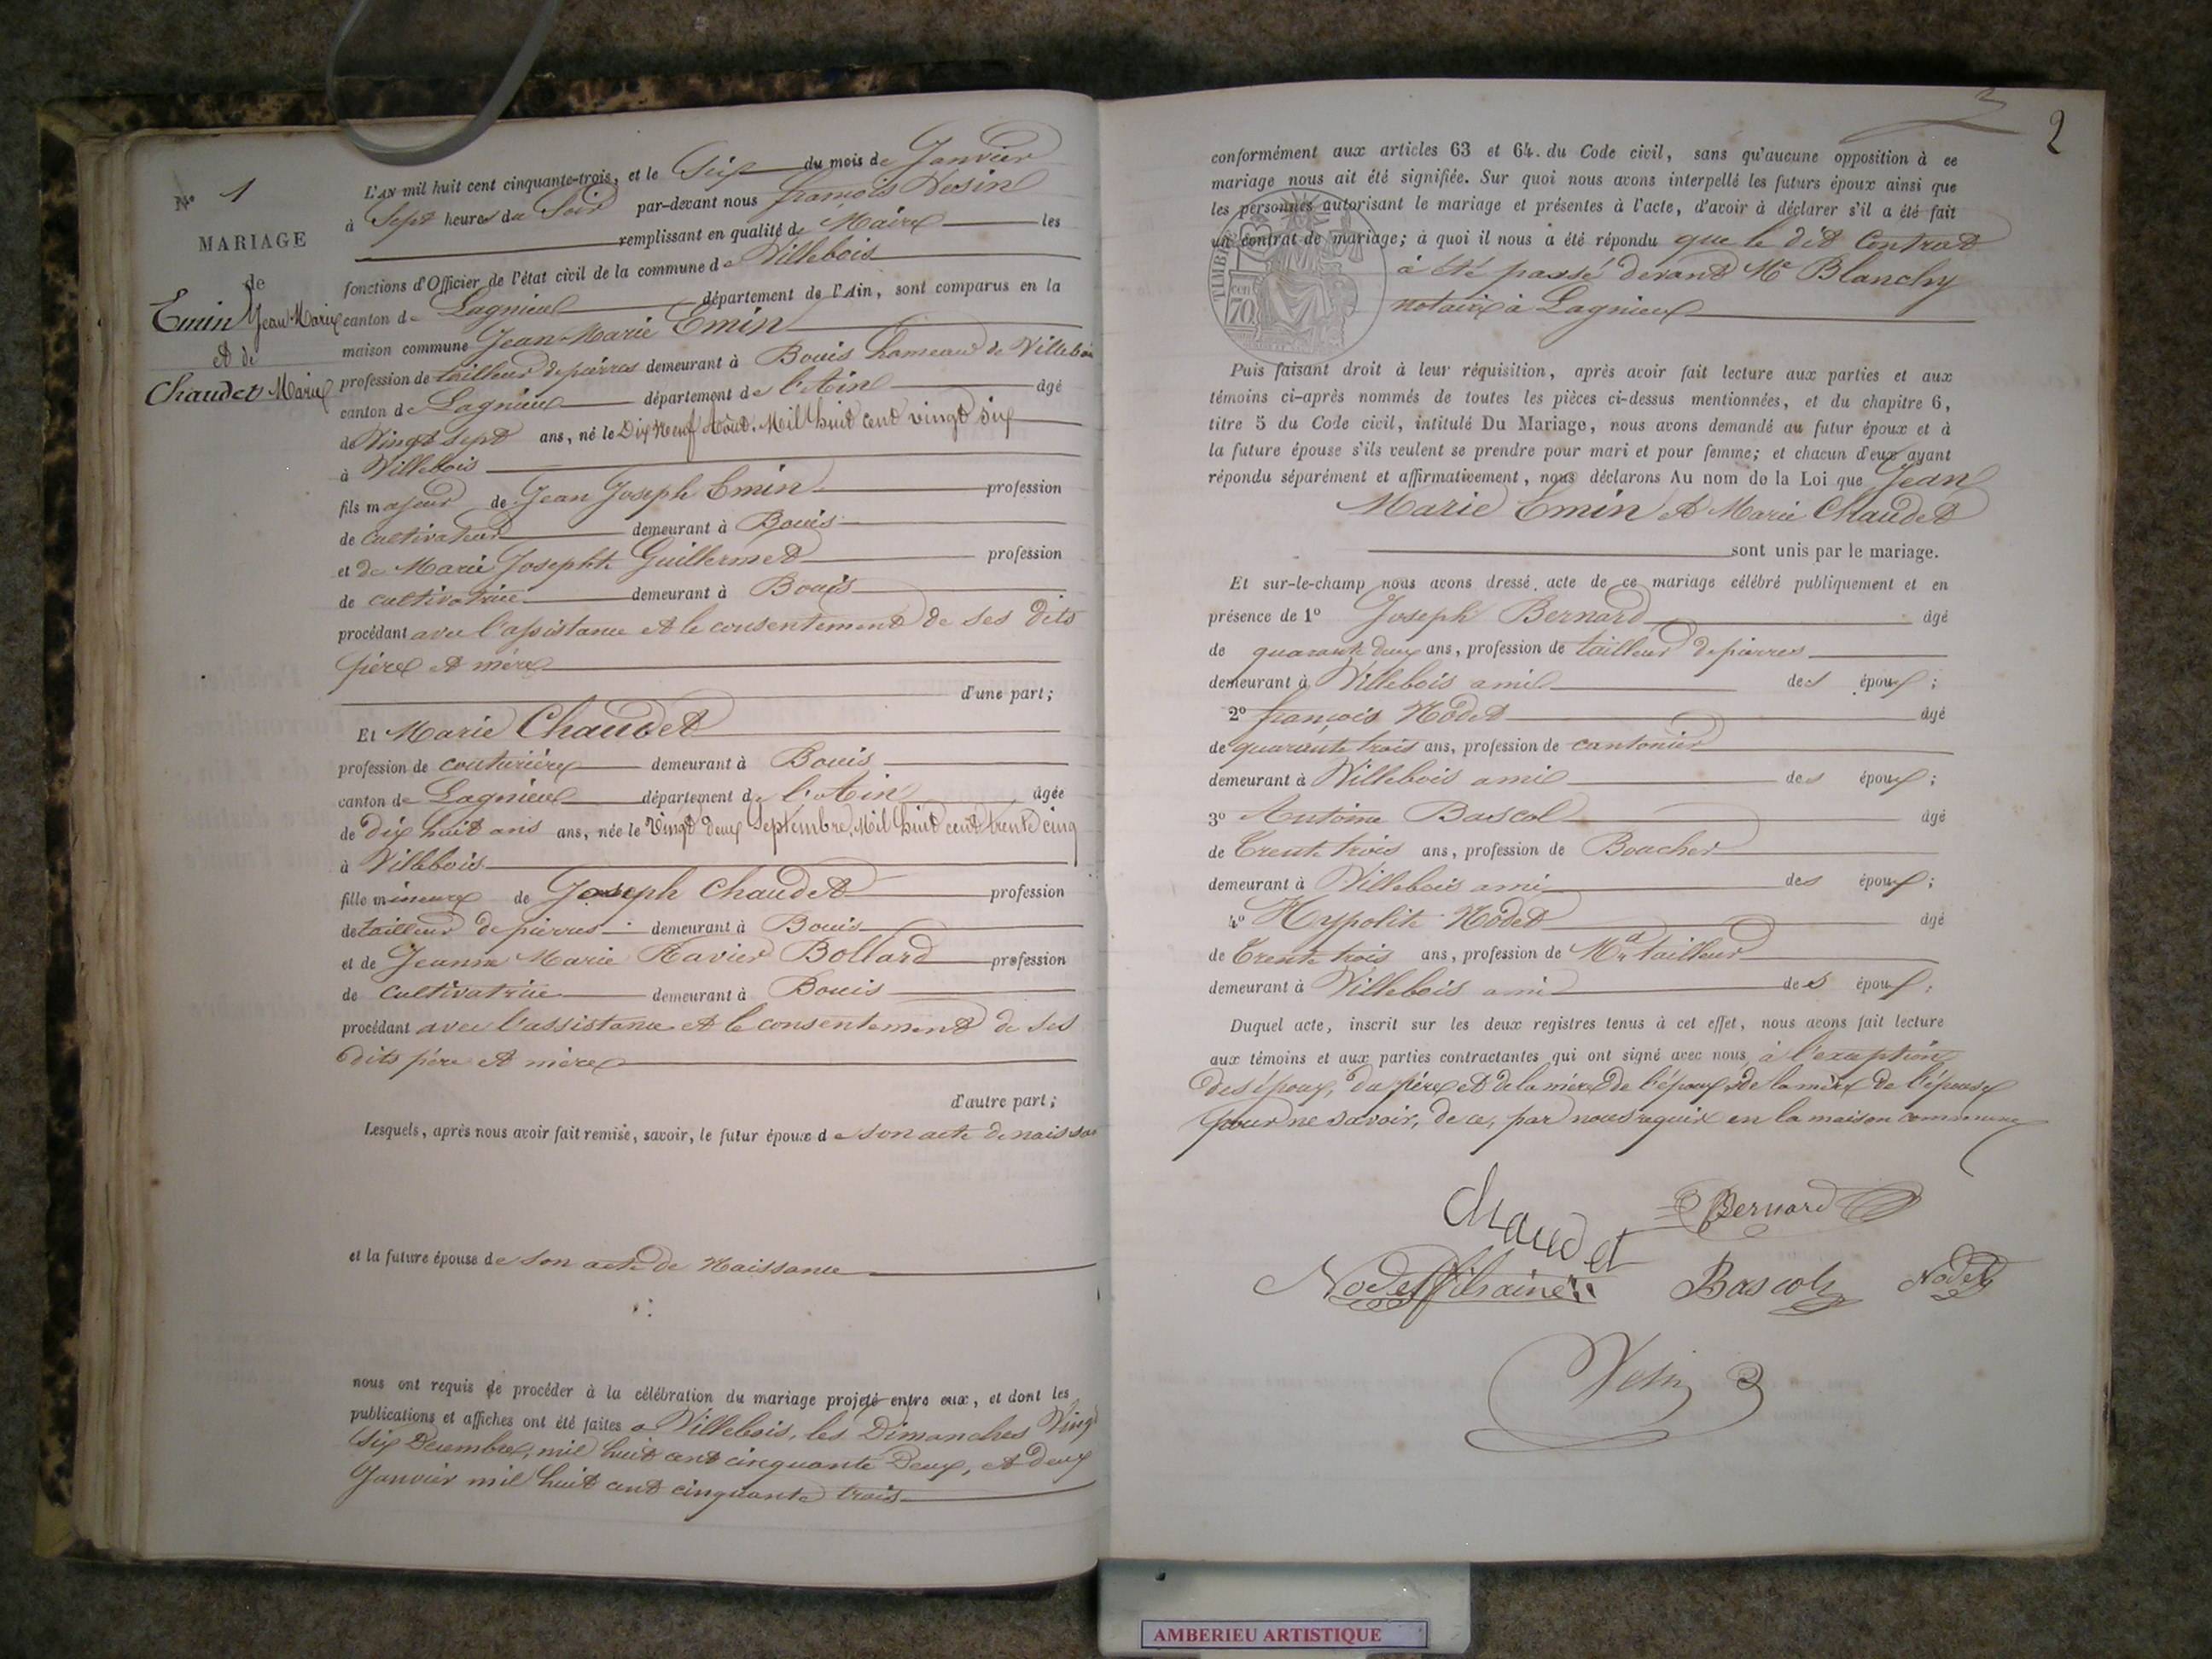 N° 1
MARIAGE
de
Emin Jean Marie
et de
Chaudet Marie
L'AN mil huit cent cinquante-trois, et le Six du mois de Janvier
à Sept heures du Soir par-devant nous françois Vesin
remplissant en qualité de Maire les
fonctions d'Officier de l'état civil de la commune de Villebois
canton de Lagnieu département de l'Ain, sont comparus en la
maison commune Jean Marie Emin
profession de tailleur de pierres demeurant à Bouis hameau de Villebois
canton de Lagnieu département de l'Ain âgé
de Vingt sept ans, né le Dix Neuf Août. Mil huit cent vingt six
à Villebois
fils majeur de Jean Joseph Emin profession
de cultivateur demeurant à Bouis
et de Marie Josephte Guillermet profession
de cultivatrice demeurant à Bouis
procédant avec l'assistance et le consentement de ses dits
père et mère
d'une part;
Et Marie Chaudet
profession de couturière demeurant à Bouis
canton de Lagnieu département de l'Ain âgée
de dix huit ans ans, née le Vingt deux Septembre, Mil huit cent trente cinq
à Villebois
fille mineure de Joseph Chaudet profession
de tailleur de pierres demeurant à Bouis
et de Jeanne Marie Ravier Bollard profession
de cultivatrice demeurant à Bouis
procédant avec l'assistance et le consentement de ses
dits père et mère
d'autre part;
Lesquels, après nous avoir fait remise, savoir, le futur époux de son acte de naissan
et la future épouse de son acte de Naissance
nous ont requis de procéder à la célébration du mariage projeté entre eux, et dont les
publications et affiches ont été faites a Villebois, les Dimanches Vingt
six Decembre, mil huit cent cinquante Deux, et deux
Janvier mil huit cent cinquante trois
2
conformément aux articles 63 et 64 du Code civil, sans qu'aucune opposition à ce
mariage nous ait été signifiée. Sur quoi nous avons interpellé les futurs époux ainsi que
les personnes autorisant le mariage et présentes à l'acte, d'avoir à déclarer s'il a été fait
un contrat de mariage; à quoi il nous a été répondu que le dit Contrat
à été passé devant Me Blanchy
notaire à Lagnieu
TIMBRE
70
Puis faisant droit à leur réquisition, après avoir fait lecture aux parties et aux
témoins ci-après nommés de toutes les pièces ci-dessus mentionnées, et du chapitre 6,
titre 5 du Code civil, intitulé Du Mariage, nous avons demandé au futur époux et à
la future épouse s'ils veulent se prendre pour mari et pour femme; et chacun d'eux ayant
répondu séparément et affirmativement, nous déclarons Au nom de la Loi que Jean
Marie Emin et Marie Chaudet
sont unis par le mariage.
Et sur-le-champ nous avons dressé acte de ce mariage célébré publiquement et en
présence de 1° Joseph Bernard âgé
de quarante deux ans, profession de tailleur de pierres
demeurant à Villebois ami des époux;
2° françois Nodet âgé
de quarante trois ans, profession de cantonier
demeurant à Villebois ami des époux;
3° Antoine Bascol âgé
de Trente trois ans, profession de Boucher
demeurant à Villebois ami des époux;
4° Hypolite Nodet âgé
de Trente trois ans, profession de Md tailleur
demeurant à Villebois ami des époux;
Duquel acte, inscrit sur les deux registres tenus à cet effet, nous avons fait lecture
aux témoins et aux parties contractantes qui ont signé avec nous à l'exception
des époux, du père et de la mère de l'époux & de la mère de l'épouse
pour ne savoir, de ce, par nous requis en la maison commune
Chaudet
Bernard
Nodet
Bascol
Nodet
Vesin
AMBERIEU ARTISTIQUE